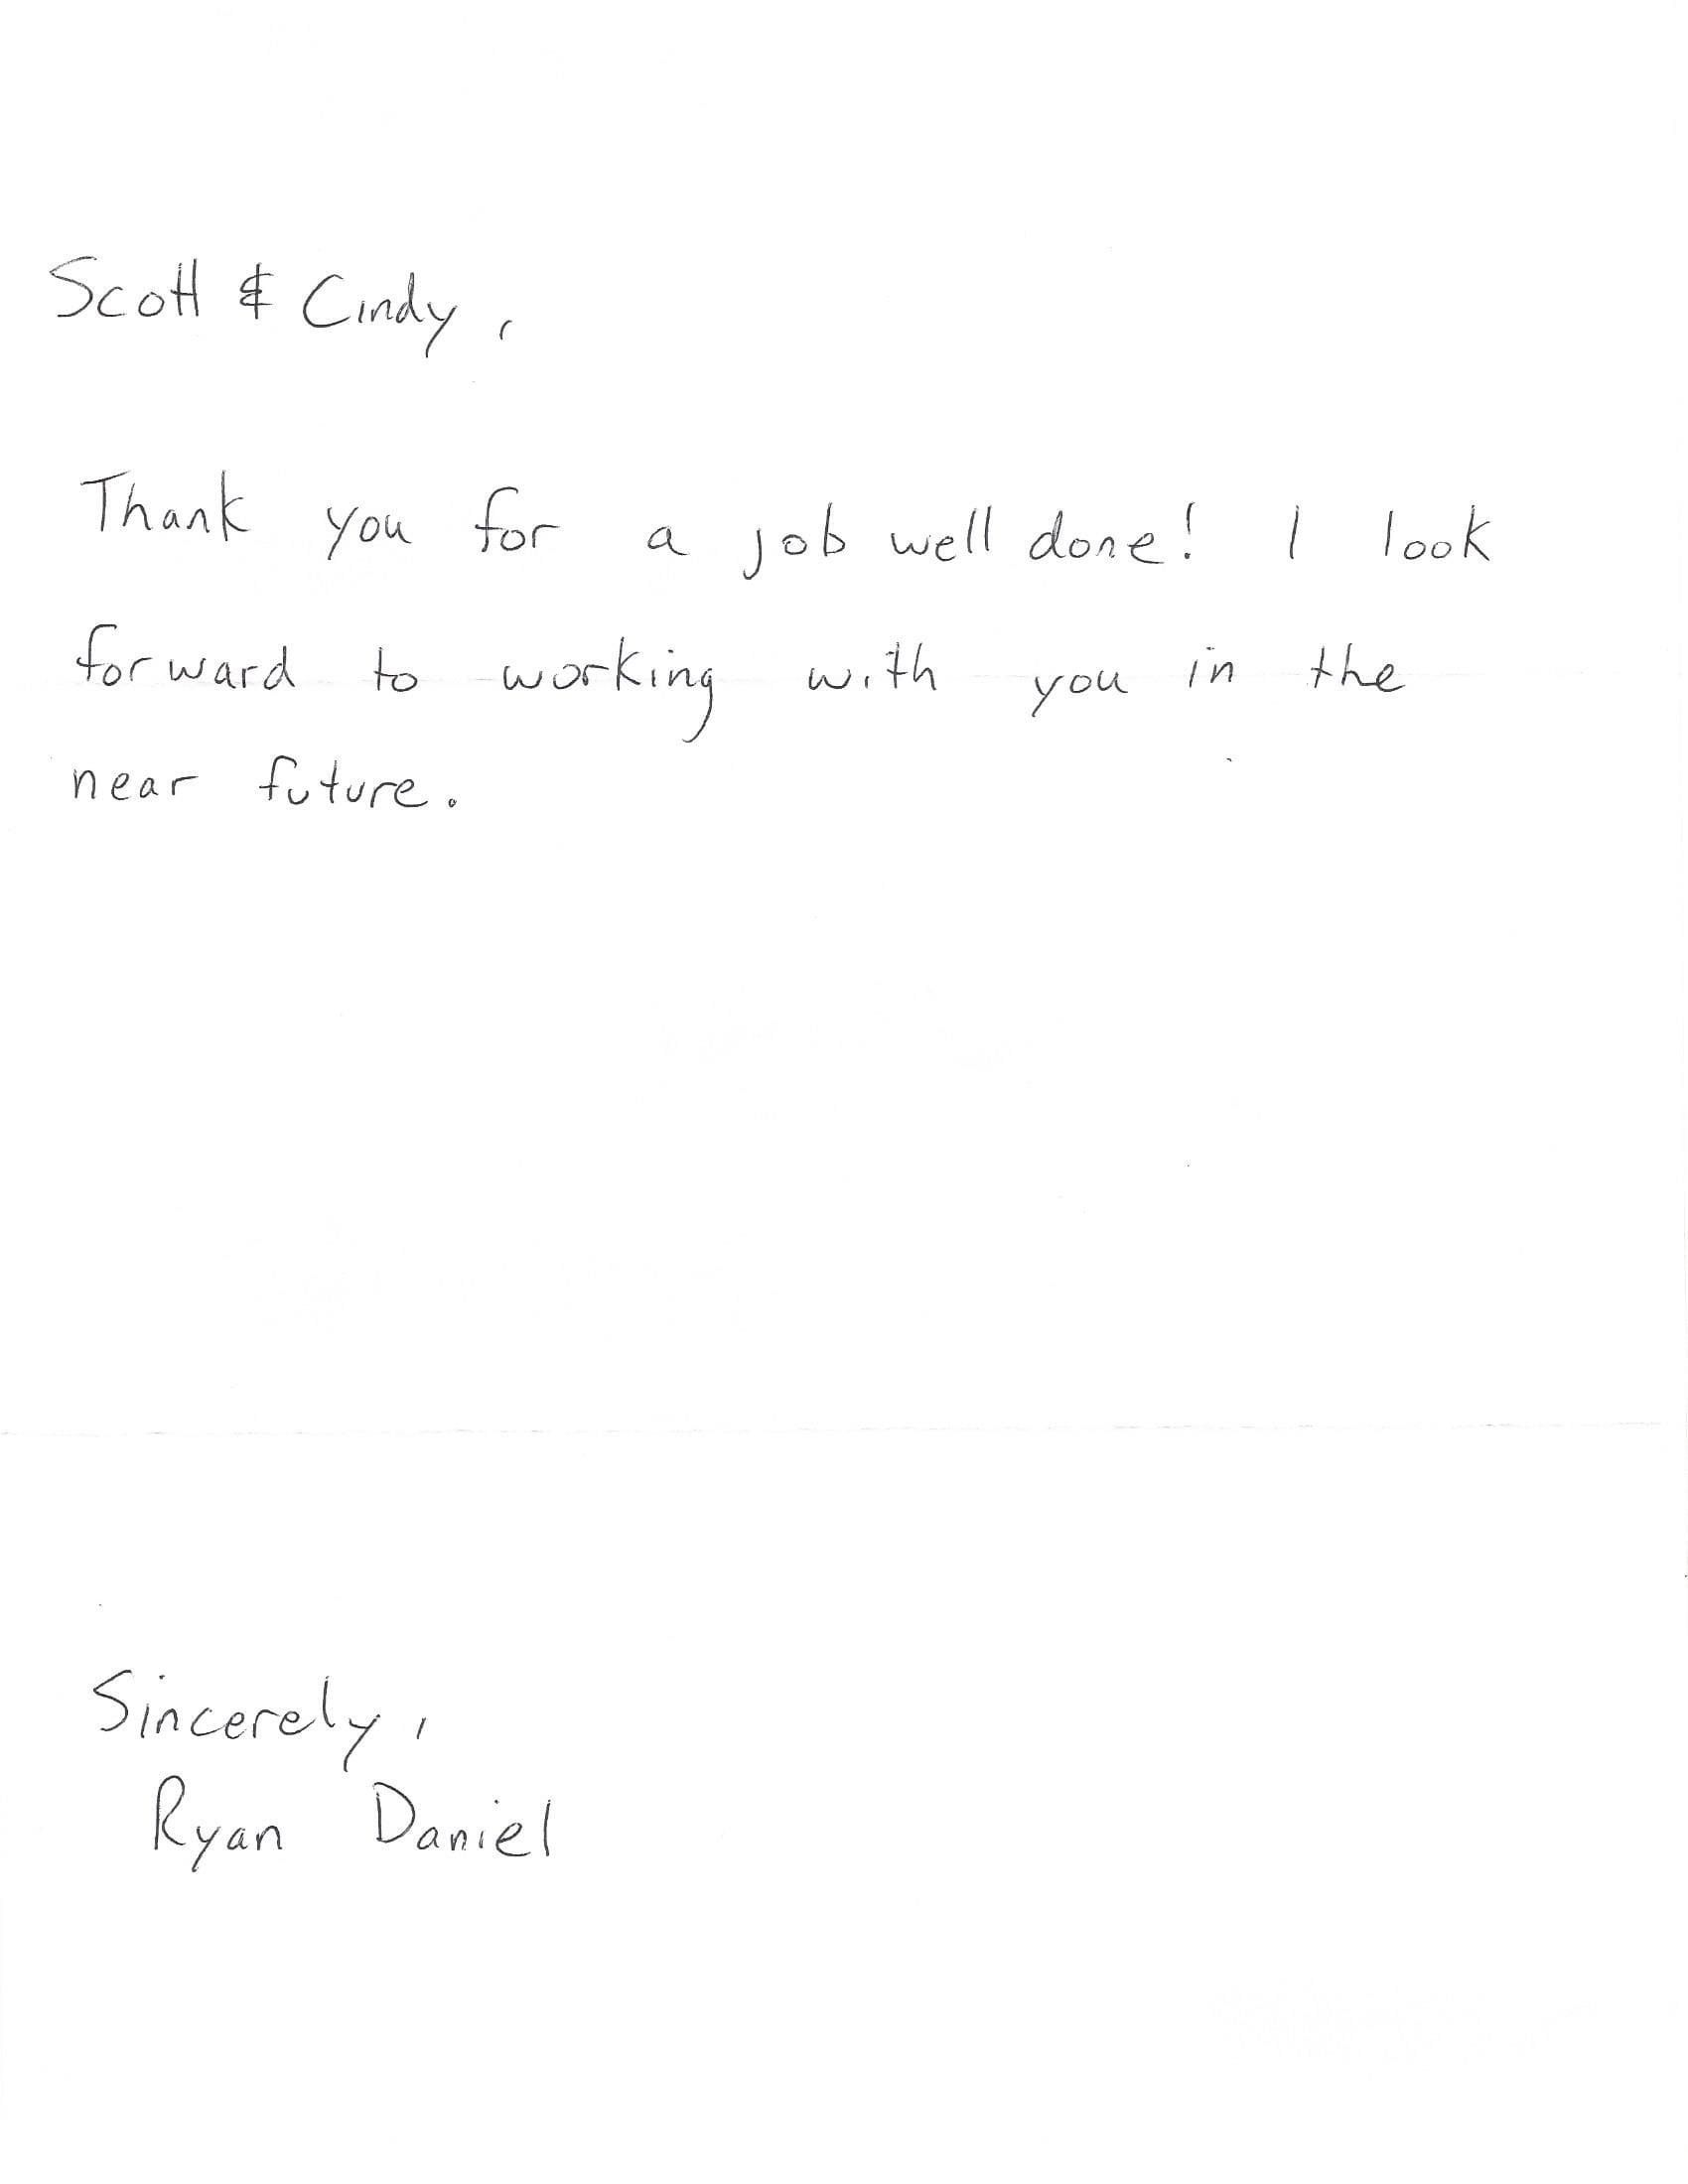 Scott & Cindy,
Thank you for a job well done! I look
forward to working with you in the
near future.
Sincerely,
Ryan Daniel